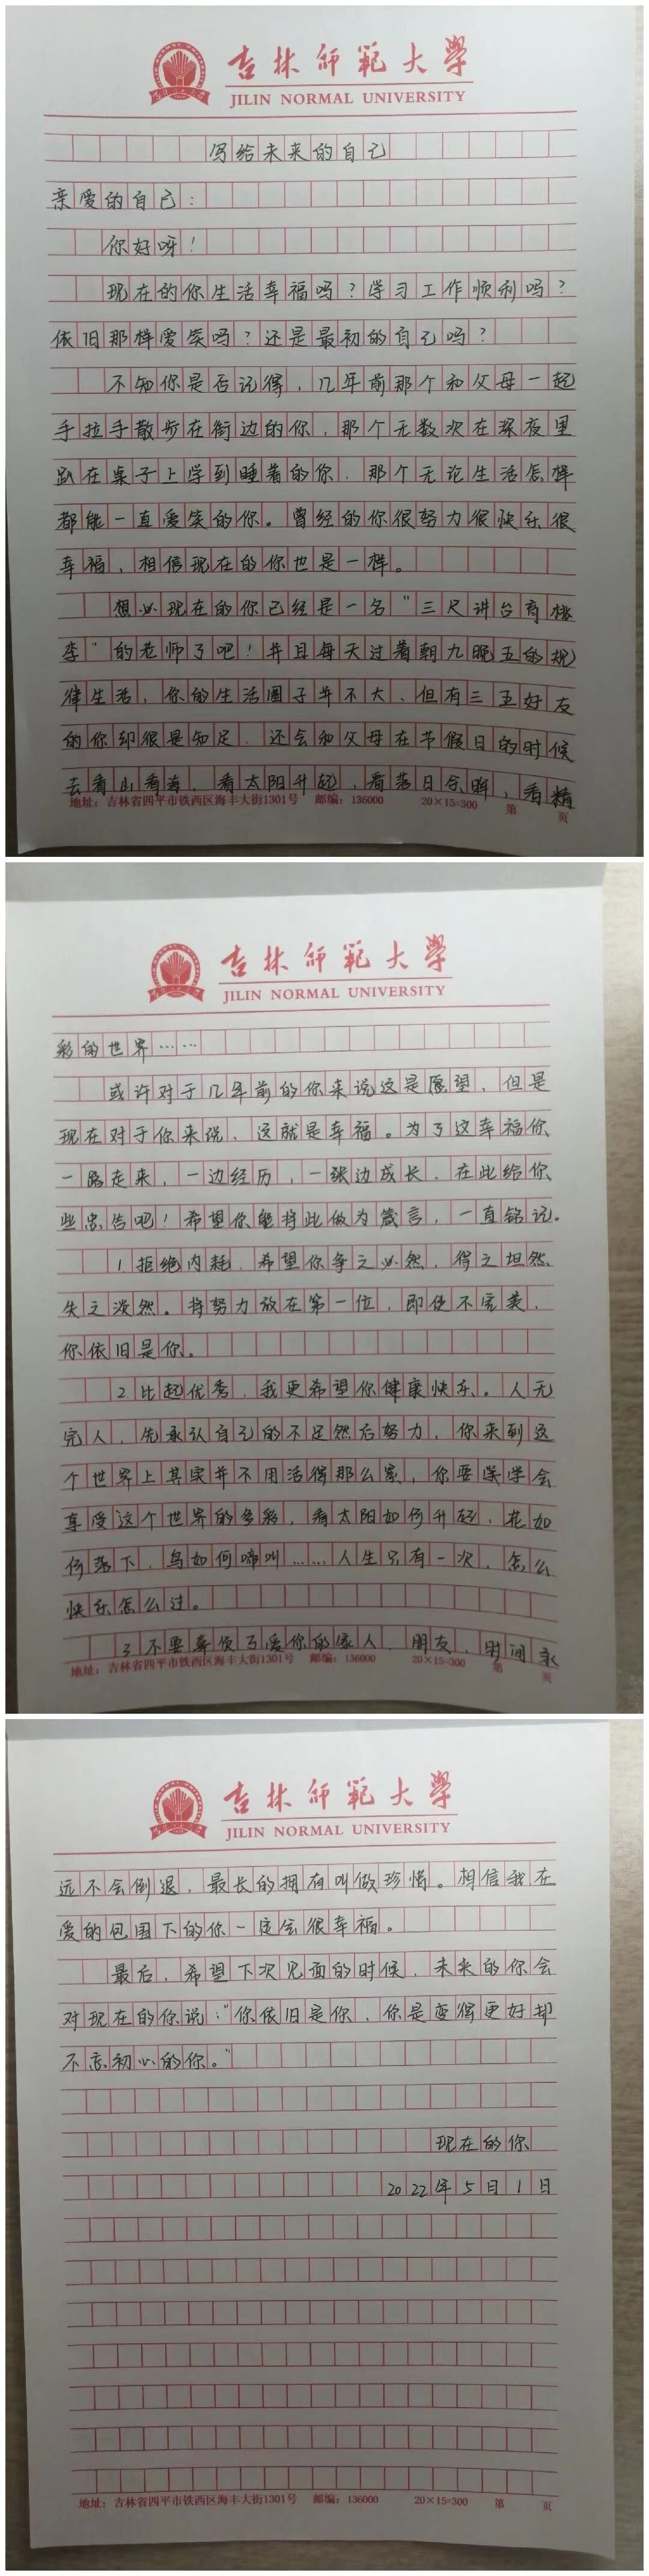 吉林师范大學
JILIN NORMAL UNIVERSITY
写给未来的自己
亲爱的自己：
你好呀！
现在的你生活幸福吗？学习工作顺利吗？
依旧那样爱笑吗？还是最初的自己吗？
不知你是否记得，几年前那个和父母一起
手拉手散步在街边的你，那个无数次在深夜里
趴在桌子上学到睡着的你，那个无论生活怎样
都能一直爱笑的你。曾经的你很努力很快乐很
幸福，相信现在的你也是一样。
想必现在的你已经是一名“三尺讲台育桃
李”的老师了吧！并且每天过着朝九晚五的规
律生活，你的生活圈子并不大，但有三五好友
的你却很是知足，还会和父母在节假日的时候
去看山看海，看太阳升起，看落日余晖，看精
地址：吉林省四平市铁西区海丰大街1301号 邮编：136000 20×15=300 第 页
吉林师範大學
JILIN NORMAL UNIVERSITY
彩的世界……
或许对于几年前的你来说这是愿望，但是
现在对于你来说，这就是幸福。为了这幸福你
一路走来，一边经历，一张边成长，在此给你
些忠告吧！希望你能将此做为箴言，一直铭记。
1.拒绝内耗，希望你争之必然，得之坦然，
失之泼然。将努力放在第一位，即使不完美，
你依旧是你。
2.比起优秀，我更希望你健康快乐。人无
完人，先承认自己的不足然后努力，你来到这
个世界上其实并不用活得那么累，你要学会
享受这个世界的多彩，看太阳如何升起，花如
何落下，鸟如何啼叫……人生只有一次，怎么
快乐怎么过。
3.不要辜负了爱你的家人、朋友，时间永
地址：吉林省四平市铁西区海丰大街1301号 邮编：136000 20×15=300 第 页
吉林师範大學
JILIN NORMAL UNIVERSITY
远不会倒退，最长的拥有叫做珍惜。相信我在
爱的包围下的你一定会很幸福。
最后，希望下次见面的时候，未来的你会
对现在的你说：“你依旧是你，你是变得更好却
不忘初心的你。”
现在的你
2022年5月1日
地址：吉林省四平市铁西区海丰大街1301号 邮编：136000 20×15=300 第 页